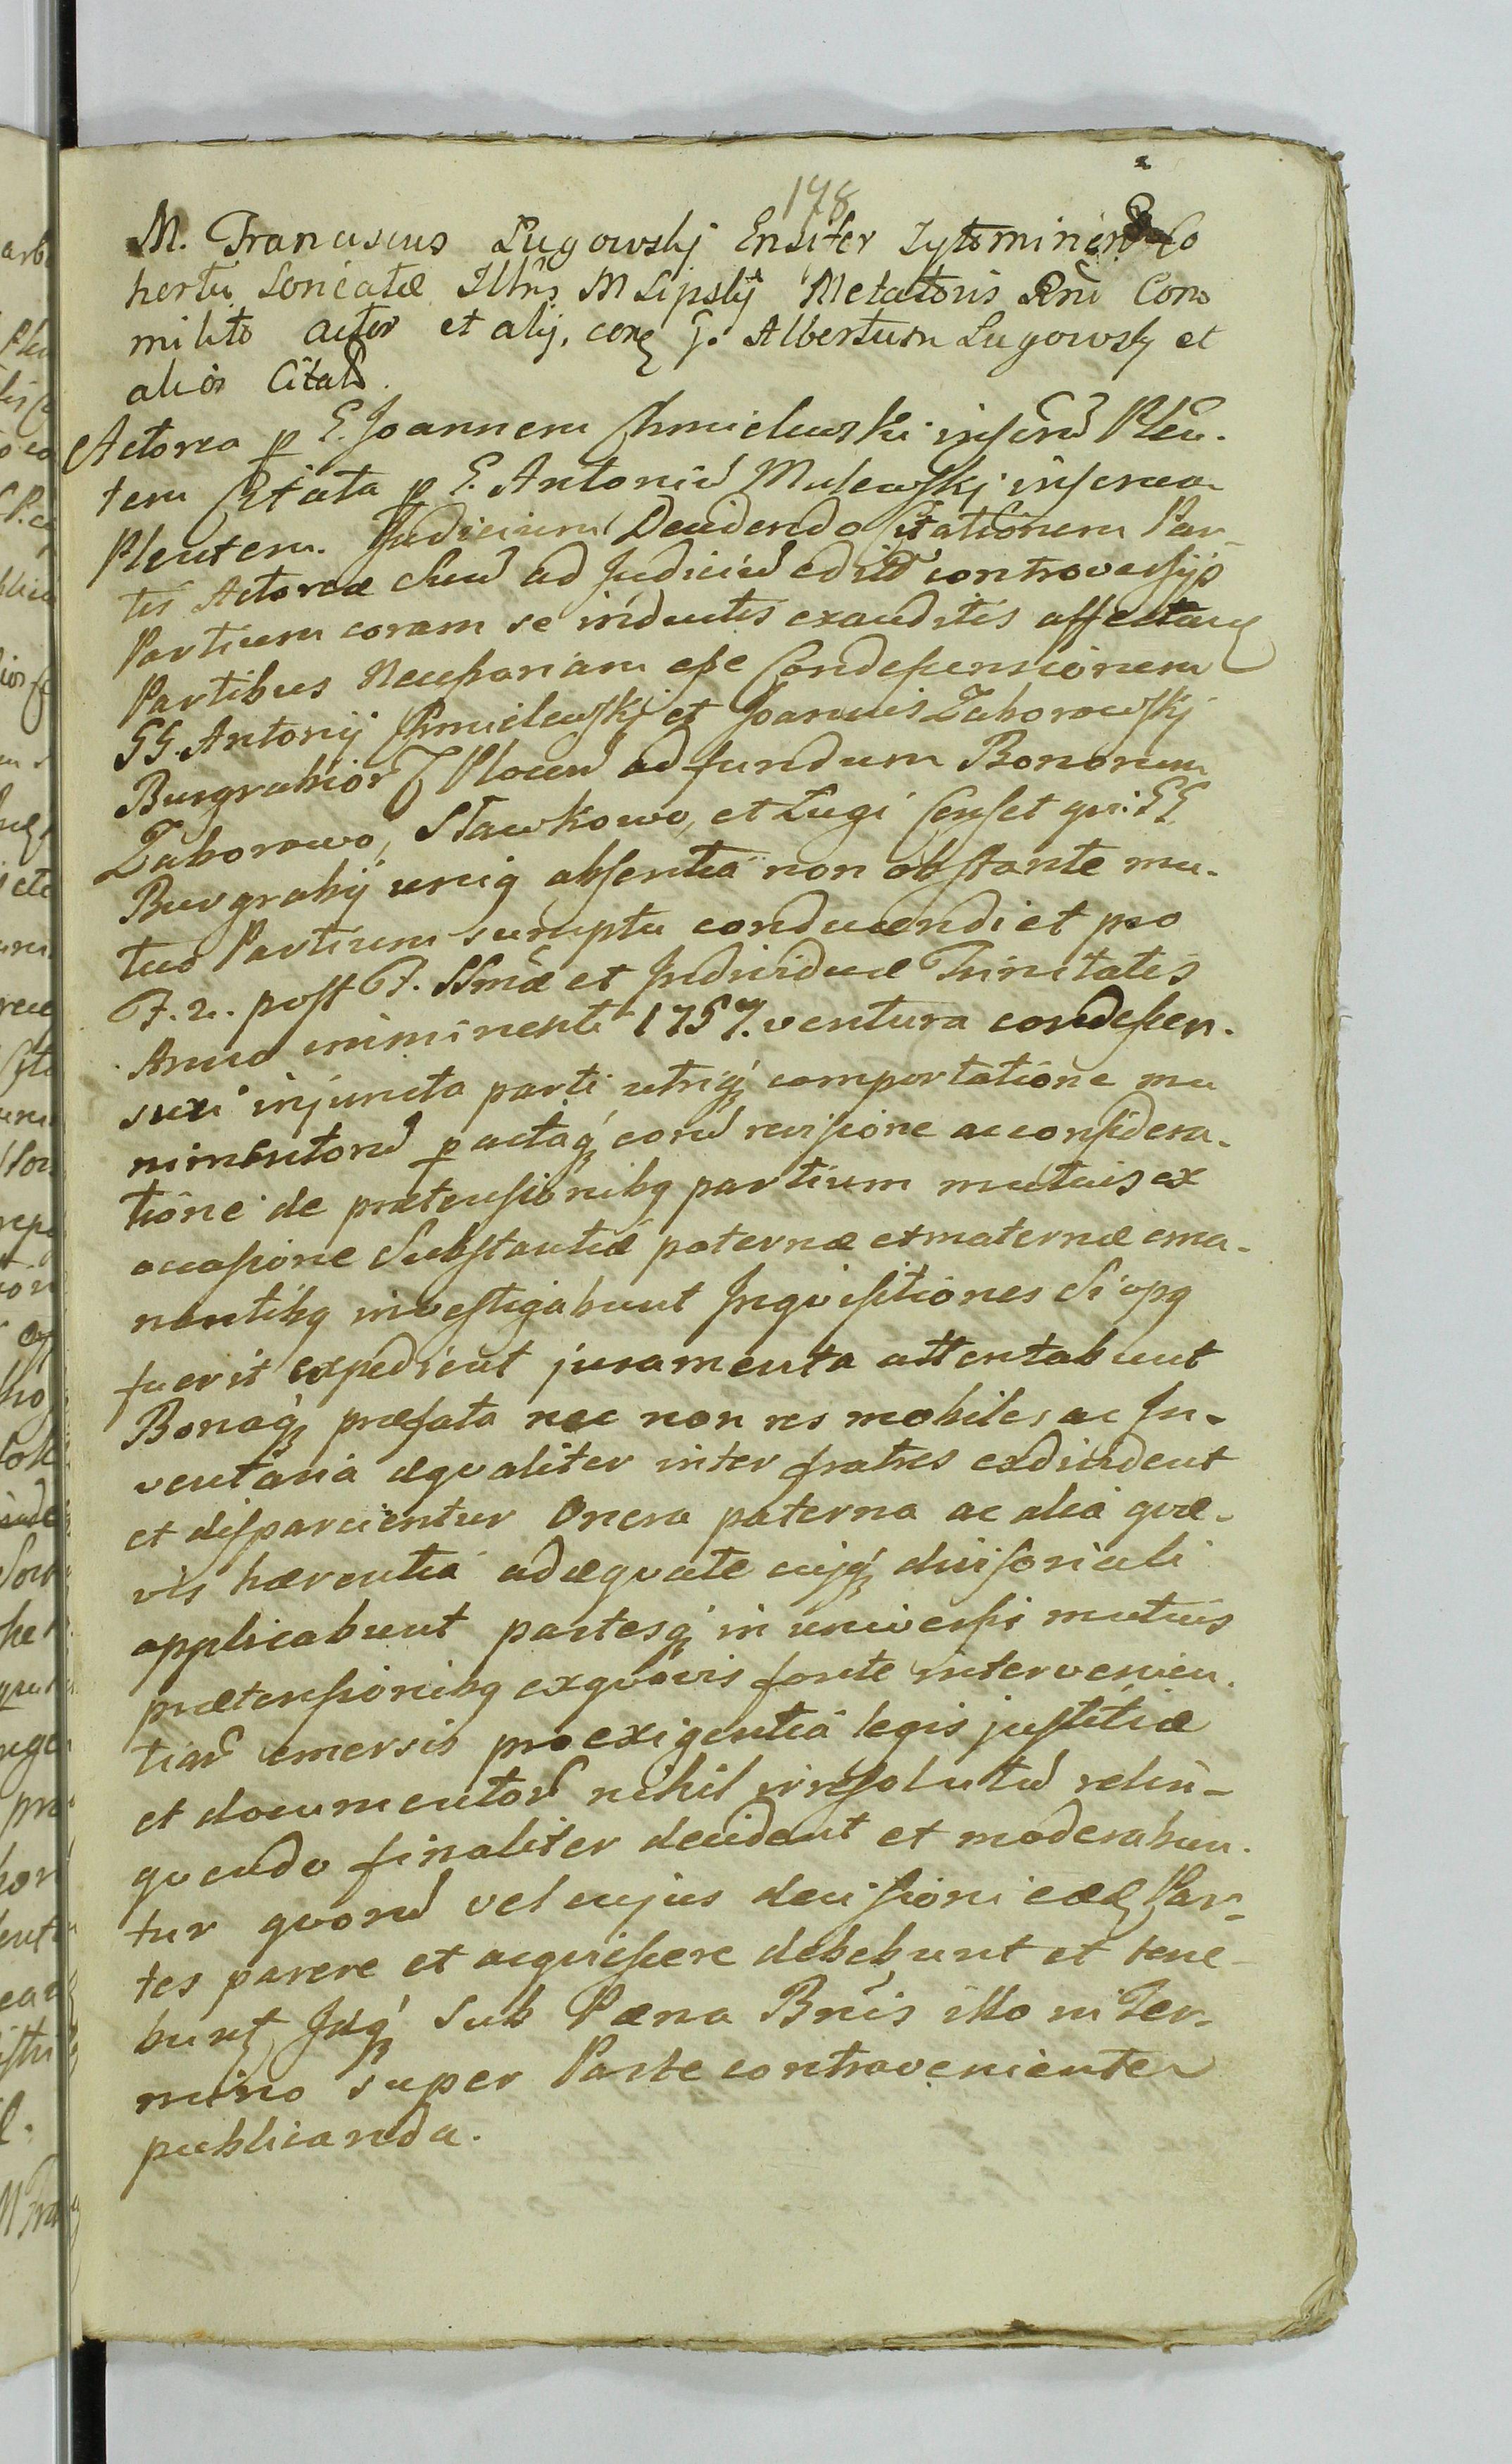 178
M. Franciscus Lugowskj Ensifer Zytominien Co
hortis Loricatæ Illris M Lipskÿ Metatoris Rni Com
milito actor et alij, cora G. Albertum Lugowskj et
alios Citatd.
Actorea p G. Joannem Chmielewski infrnd Plen.
tem Citata p G. Antoniu Mulewskj inferea
Plentem. Judicium Decidendo Citationem Par-
tis Actoreæ suu ad Judiciu editã controversÿs
Partium coram se inductis exauditis affectanq
Partibus Necessariam esse Condescensionem
GG. Antonij Chmielewskj et Joannis Zaborowskj
Burgrabior Plocen ad fundum Bonorum
Zaborowo, Sławkowo, et Ługi Censet qui GG
Burgrabÿ uniq absentia non obstante mu-
tuo Partium sumptu conducendi et pro
F. 2. post F. SSmæ et Individuæ Trinitatis
Anno imminenti 1757. ventura condescen-
suri injuncta parti utriq comportatione mu
nimentoru pactaq eoru revisione ac considera-
tione de prætensionibq partium mutuis ex
occasione Substantiæ paternæ et maternæ ema-
nantibq investigabunt Inquisitiones Si opq
fuerit expedient juramenta attentabunt
Bonaq præfata nec non res mobiles ac In-
ventaria æqualiter inter fratres exdivident
et dispartientur Onera paterna ac alia quæ-
vis hærentia adæquate cujq divisoriali
applicabunt partesq in universis mutuis
prætensionibq exquavis fonte intervenien-
tiar emersis pro exigentia legis justitiæ
et documentor nihil irresolutu relin-
quendo finaliter decident et moderabun-
tur quoru vel cujus decisioni eædq Par-
tes parere et acquiescere debebunt et tene-
bunt Idq Sub Pæna Bnis illo in Ter-
mino super Parte contraveniente
publicanda.